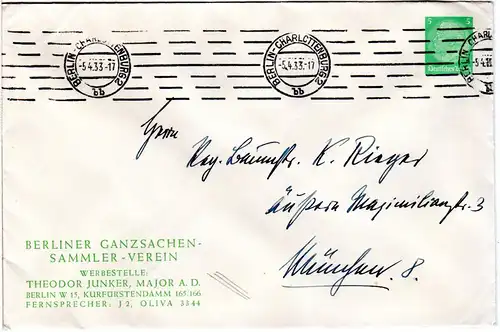 BERLIN-CHARLOTTENBURG 2
-5.4.33.-17
bb
BERLIN-CHARLOTTENBURG 2
-5.4.33.-17
bb
5 5
Herrn
Reg. Baumstr. K. Rieger
Äußern Maximilianstr. 3
München. 8.
BERLINER GANZSACHEN-
SAMMLER-VEREIN
WERBESTELLE:
THEODOR JUNKER, MAJOR A. D.
BERLIN W 15, KURFÜRSTENDAMM 165/166
FERNSPRECHER: J 2, OLIVA 3344